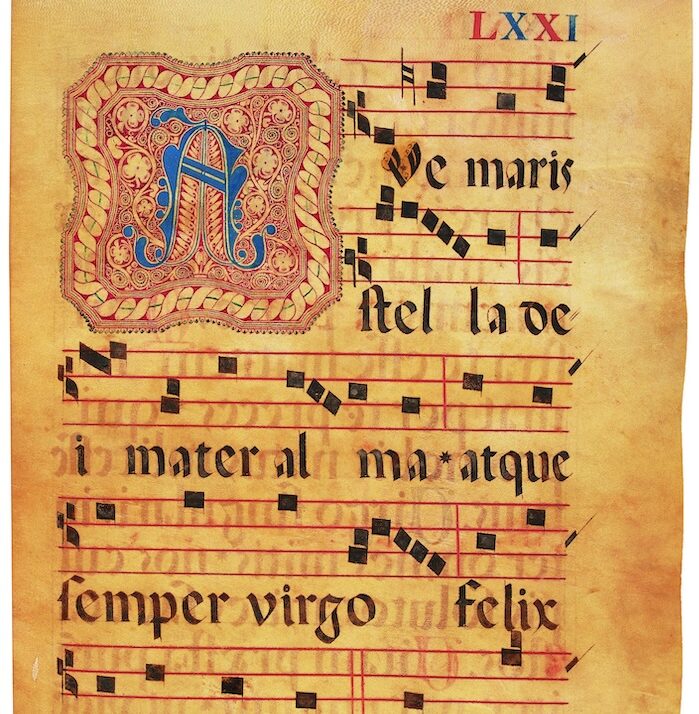 LXXI
Ave maris
stel la de
i mater al ma * atque
semper virgo felix